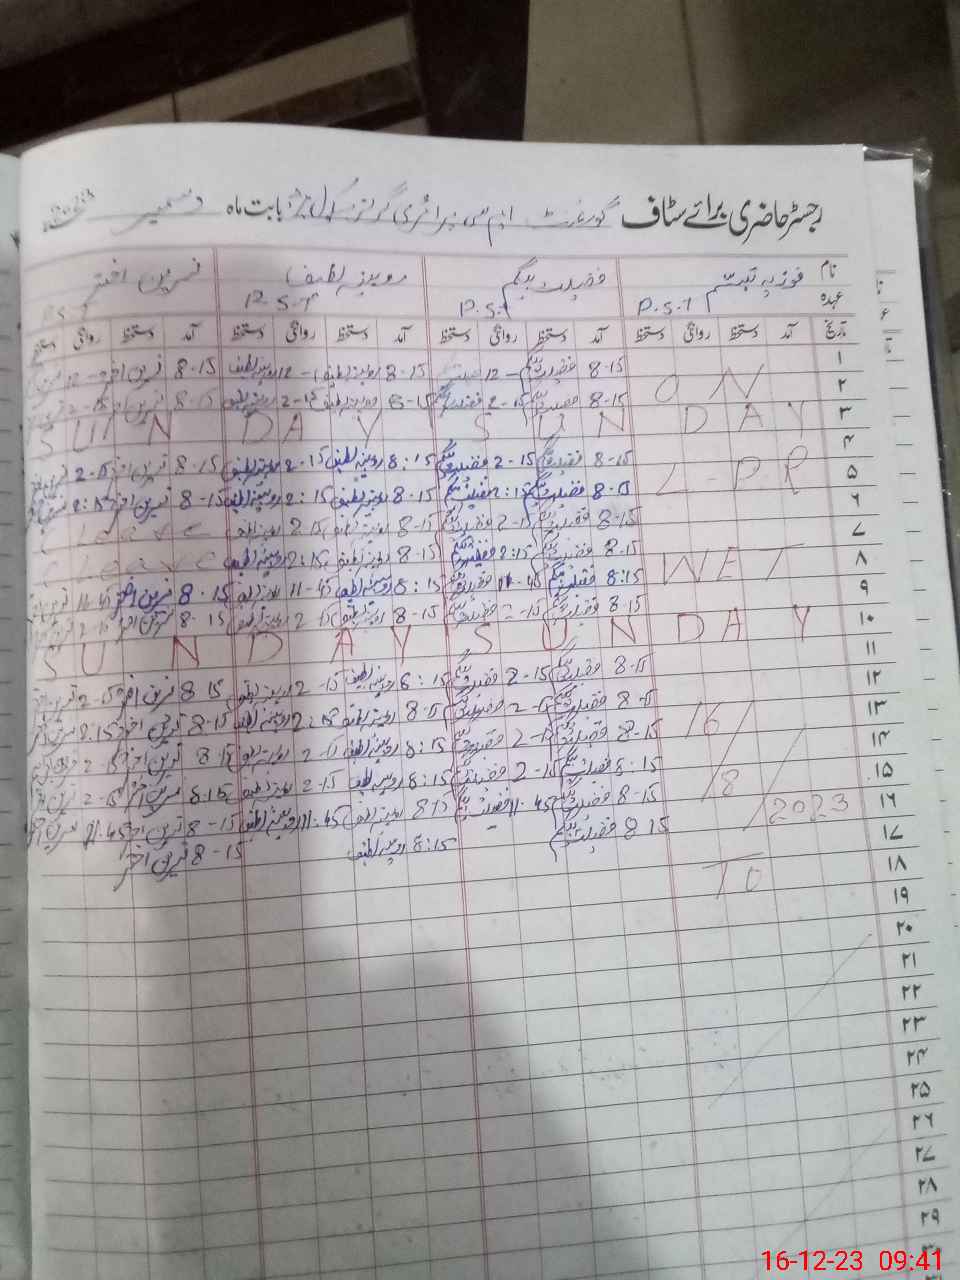 رجسٹر حاضری برائے سٹاف گورنمنٹ ایم سی پرائمری گرلز سکول بابت ماہ دسمبر 2023
نام فوزیہ تبسم فضیلت بیگم روبینہ لطیف نسرین اختر
عہدہ P.S.T P.S.T P.S.T P.S.T
تاریخ آمد دستخط روانگی دستخط آمد دستخط روانگی دستخط آمد دستخط روانگی دستخط آمد دستخط روانگی دستخط
۱ 8-15 فضیلت بیگم 12 8-15 روبینہ لطیف 12 روبینہ لطیف 8-15 نسرین اختر 12
۲ ON 8-15 فضیلت بیگم 2-15 فضیلت بیگم 8-15 روبینہ لطیف 2-15 روبینہ لطیف 8-15 نسرین اختر 2-15
۳ SUNDAY SUNDAY
۴ 8-15 فضیلت بیگم 2-15 فضیلت بیگم 8:15 روبینہ لطیف 2-15 روبینہ لطیف 8-15 نسرین اختر 2-15
۵ L-PR 8-15 فضیلت بیگم 2:15 فضیلت بیگم 8-15 روبینہ لطیف 2:15 روبینہ لطیف 8-15 نسرین اختر 2:15
۶ 8-15 فضیلت بیگم 2-15 فضیلت بیگم 8-15 روبینہ لطیف 2-15 روبینہ لطیف C Leave
۷ 8-15 فضیلت بیگم 2:15 فضیلت بیگم 8-15 روبینہ لطیف 2:15 روبینہ لطیف C Leave
۸ WET 8:15 فضیلت بیگم 11-45 فضیلت بیگم 8:15 روبینہ لطیف 11-45 روبینہ لطیف 8-15 نسرین اختر 11-45
۹ 8-15 فضیلت بیگم 2-15 فضیلت بیگم 8-15 روبینہ لطیف 2-15 روبینہ لطیف 8-15 نسرین اختر 2-15
۱۰ SUNDAY SUNDAY
۱۱ 8-15 فضیلت بیگم 2-15 فضیلت بیگم 8:15 روبینہ لطیف 2-15 روبینہ لطیف 8-15 نسرین اختر 2-15
۱۲ 8-15 فضیلت بیگم 2-15 فضیلت بیگم 8-15 روبینہ لطیف 2:15 روبینہ لطیف 8-15 نسرین اختر 2:15
۱۳ 16/ 8-15 فضیلت بیگم 2-15 فضیلت بیگم 8:15 روبینہ لطیف 2-15 روبینہ لطیف 8-15 نسرین اختر 2-15
۱۴ 8:15 فضیلت بیگم 2-15 فضیلت بیگم 8:15 روبینہ لطیف 2-15 روبینہ لطیف 8:15 نسرین اختر 2-15
۱۵ /8 8-15 فضیلت بیگم 11:45 فضیلت بیگم 8-15 روبینہ لطیف 11:45 روبینہ لطیف 8-15 نسرین اختر 11:45
۱۶ /2023 8-15 فضیلت بیگم 8:15 روبینہ لطیف 8-15 نسرین اختر
۱۷
۱۸ TO
۱۹
۲۰
۲۱
۲۲
۲۳
۲۴
۲۵
۲۶
۲۷
۲۸
۲۹
16-12-23 09:41